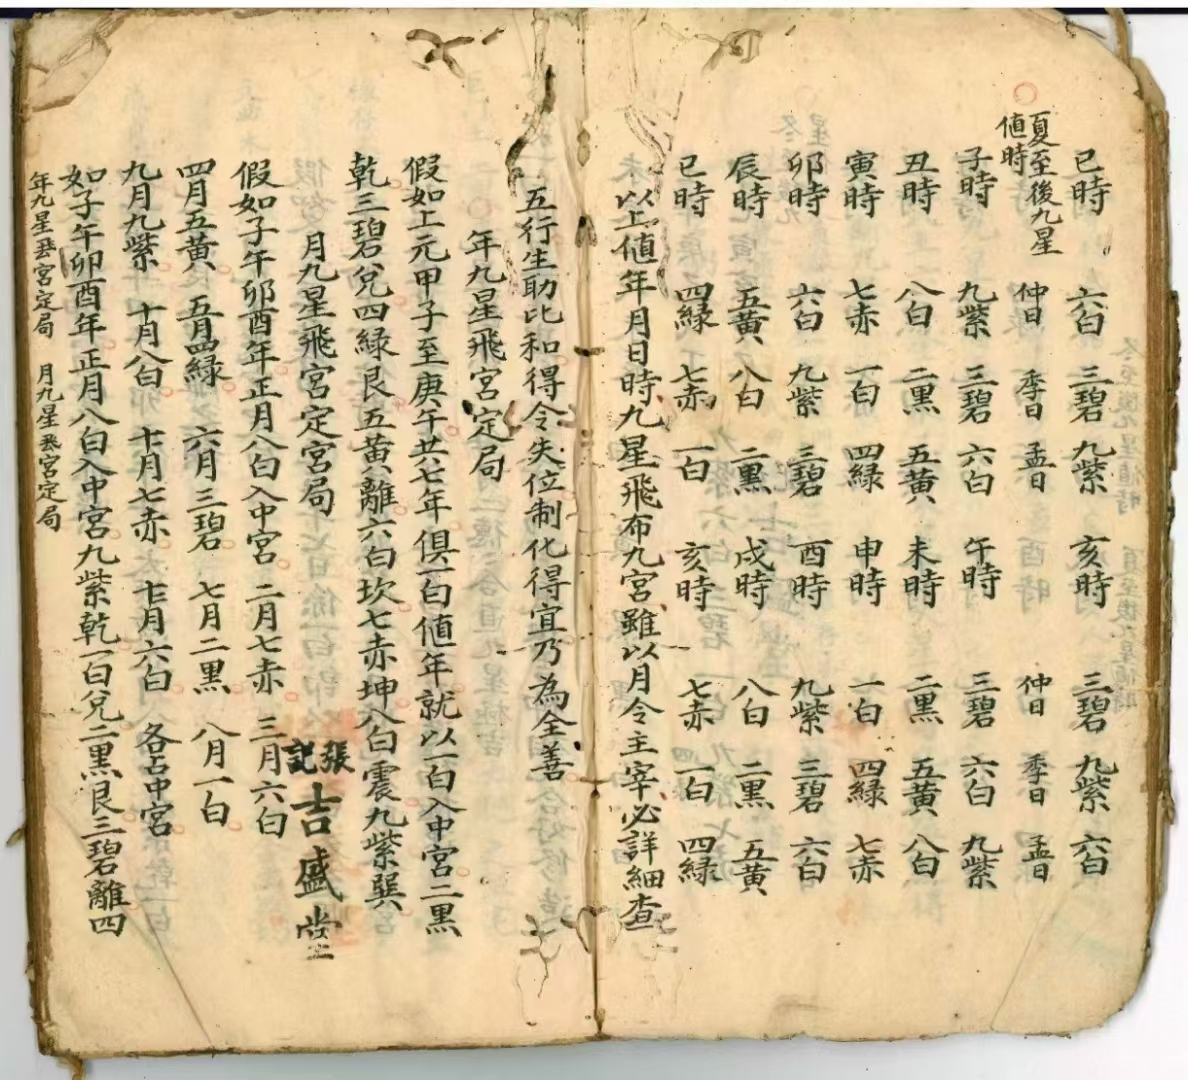 巳時 六白 三碧 九紫 亥時 三碧 九紫 六白
夏至後九星
値時
仲日 季日 孟日 仲日 季日 孟日
子時 九紫 三碧 六白 午時 三碧 六白 九紫
丑時 八白 二黑 五黄 未時 二黑 五黄 八白
寅時 七赤 一白 四緑 申時 一白 四緑 七赤
卯時 六白 九紫 三碧 酉時 九紫 三碧 六白
辰時 五黄 八白 二黑 戌時 八白 二黑 五黄
巳時 四緑 七赤 一白 亥時 七赤 一白 四緑
以上値年月日時九星飛布九宮雖以月令主宰必詳細查
五行生助比和得令失位制化得宜乃為全善
年九星飛宮定局
假如上元甲子至庚午共七年俱一白値年就以一白入中宮二黑
乾三碧兌四緑艮五黄離六白坎七赤坤八白震九紫巽
月九星飛宮定宮局
張記
吉盛堂
假如子午卯酉年正月八白入中宮 二月七赤 三月六白
四月五黄 五月四緑 六月三碧 七月二黑 八月一白
九月九紫 十月八白 十一月七赤 十二月六白 各占中宮
如子午卯酉年正月八白入中宮九紫乾一白兌二黑艮三碧離四
年九星飛宮定局 月九星飛宮定局